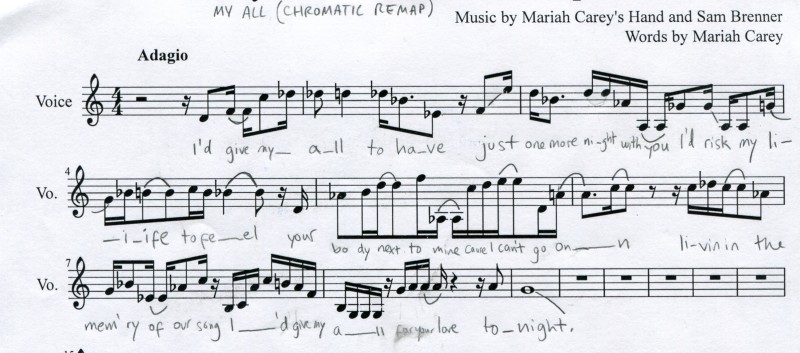 MY ALL (CHROMATIC REMAP)
Music by Mariah Carey's Hand and Sam Brenner
Words by Mariah Carey
Adagio
Voice
I'd give my_ a_ll to ha_ve just one more ni-ght with you I'd risk my li-
4
Vo.
-i-ife to fe_el your body next to mine cause I can't go on___n li-vin in the
7
Vo.
mem'ry of our song I___'d give my a_ll for your love to-night.